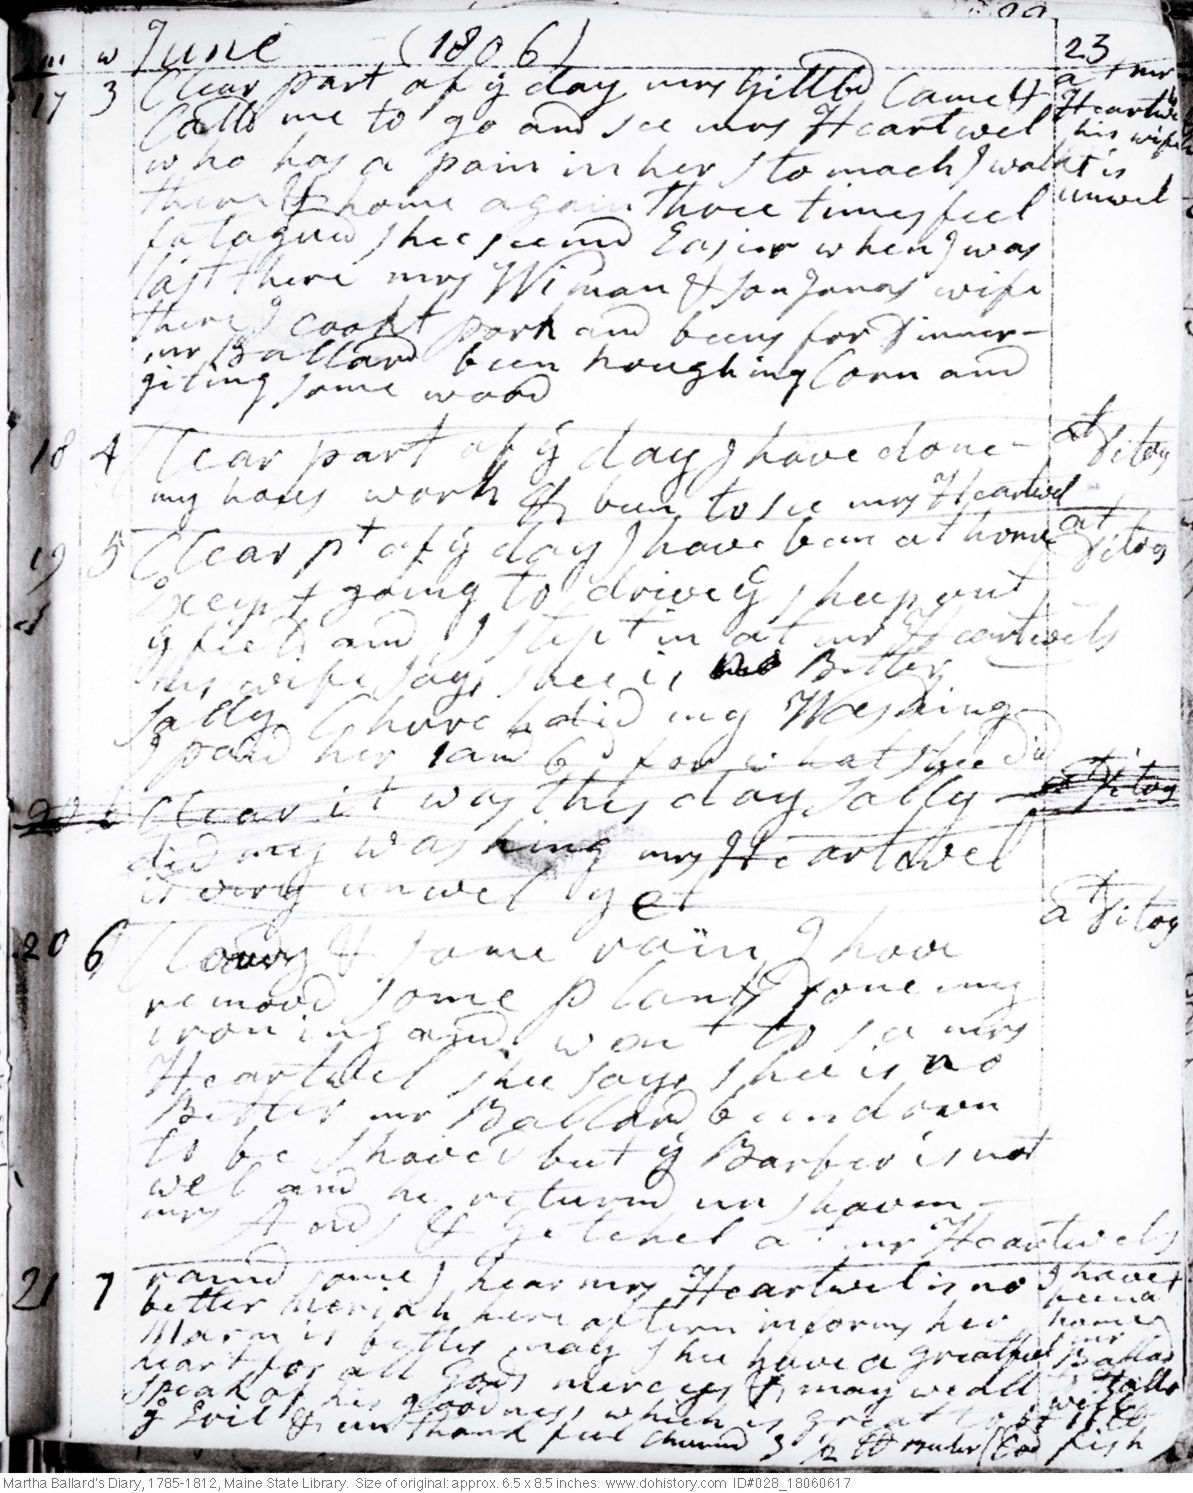 m w June (1806) 23
17 3 Clear part of ÿ day. mrs Gillbd Came &
Calld me to go and see mrs Heartwel
who has a pain in her stomach I walkt
there & home again Three times feel
fatagud shee seemd Easier when I was
last there mrs Wiman & son Jonas wife
there I cookt pork and beens for Dinner
mr Ballard been houghing Corn and
giting some wood
at mr
Heartwels
his wife
is
unwel
18 4 Clear part of ÿ day I have done
my hous work & been to see mrs Heartwel
at Ditoy
19 5 Clear pt of ÿ day I have been at home
Except going to drive ÿ sheep out
ÿ field and I stept in at mr Heartwels
his wife says shee is no Better
Sally Chore did my Washing
I paid her 1 and 6 for what shee did
at Ditoy
20 6 Clear it was this day Sally
did my washing mrs Heartwel
is very unwel yet
at Ditoy
20 6 Cloudy & some rain I have
removd some plants Done my
ironing and wen to se mrs
Heartwel shee says shee is no
Better mr Ballard been down
to be shaved but ÿ Barber is not
wel and he returnd unshaven
mrs & Getchel at mr Heartwels
at Ditoy
21 7 raind some I hear mrs Heartwel is no
better here aftern informs her
Marm is better may shee have a greatful
heart for all Gods mercies & may we all
speak of his goodness which is great to
ÿ Evil & unthankful churnd 3 1/2 lb Cod fish
I have
been at
home
mr
Ballard